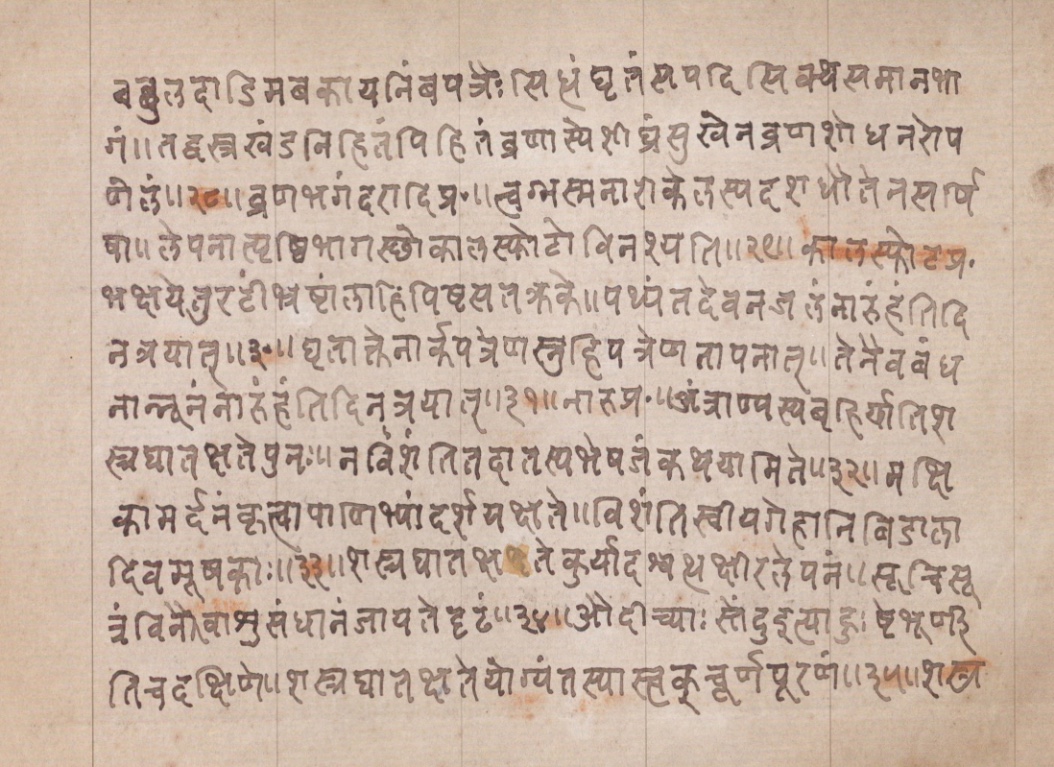 बब्बुलदाडिमबकायनिंबपत्रैः सिद्धं घृतं सपदि सिक्थसमानभा
गं॥तद्वस्त्रखंडविहितं पिहितं व्रणास्ये शीघ्रं सुखेन व्रणशोधनरोप
णेलं॥२८॥व्रणभगंदरादिप्र॰॥त्वग्भस्मनारीकेलस्य दशधौतेन सर्पि
षा॥लेपनात्पृष्ठिभागस्छो कालस्फोटो विनश्यति॥२९॥कालस्फोटप्र॰
भक्षयेतुरटीभ्रष्टां लाहिपिष्टसतक्रके॥पथ्यं तदेव नजलं नारुं हंति दि
नत्रयात्॥३०॥घृताक्तेनार्कपत्रेण स्नुहिपत्रेण तापनात्॥तेनैव बंध
नान्नूनं नारुं हंति दिनत्रयात्॥३१॥नारुप्र॰॥अंत्राण्यस्य बहिर्याति श
स्त्रघातक्षते पुनः॥नविशंति तदा तस्य भेषजं कथयामि ते॥३२॥मक्षि
कामर्दनं कृत्वा पाणिभ्यां दर्शयक्षते॥विशंति स्वीयगेहानि बिडाला
दिव मूषकाः॥३३॥शस्त्रघातक्षते कुर्यादश्वत्थक्षीरलेपनं॥सूचिसू
त्रं विनैवाशु संधानं जायते दृढं॥३४॥औदीच्याः स्तेंदु इत्याहुः
ति च दक्षिणे॥शस्त्रघातक्षते योग्यं तस्यास्त्वक्चूर्णपूरणं॥३५॥शस्त्र